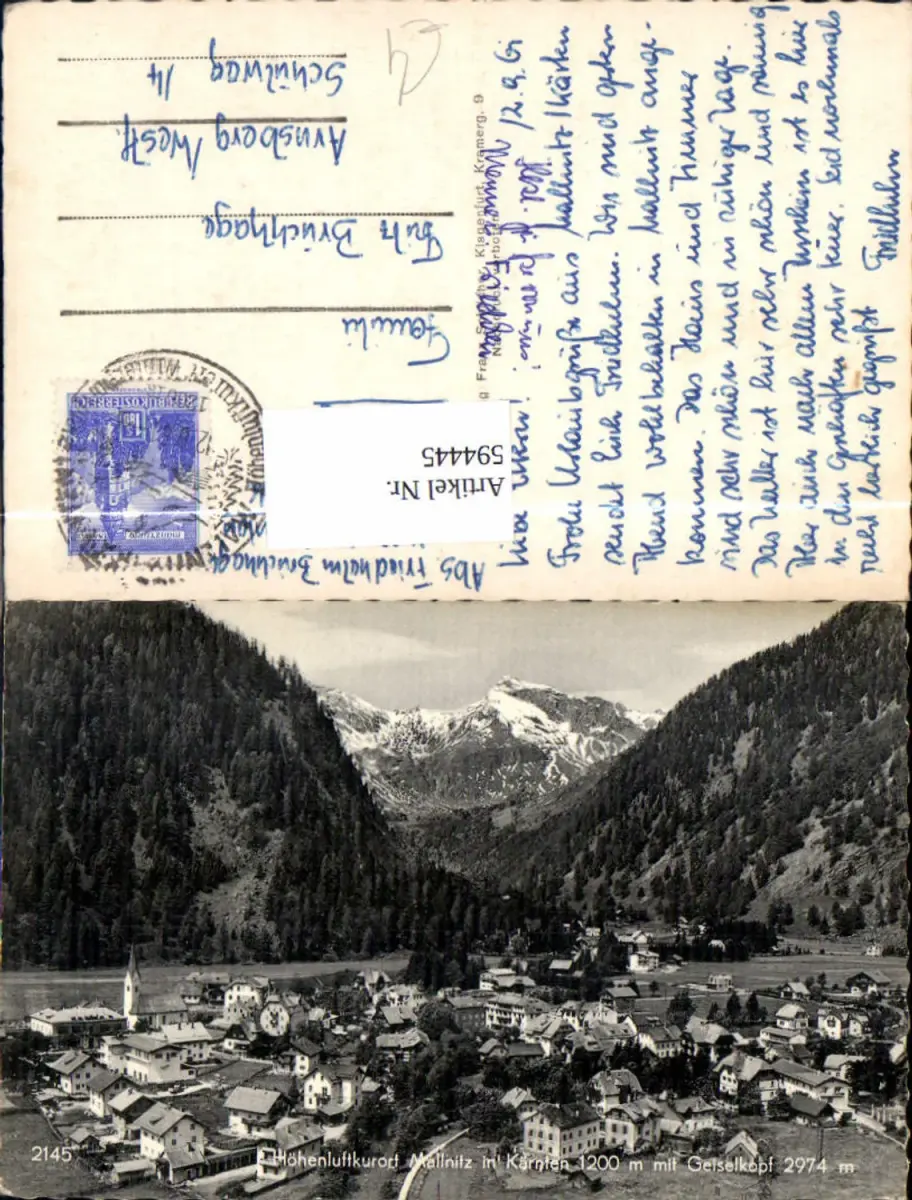 Artikel Nr.
594445
Familie
Fritz Brüchhage
Arnsberg/Westf.
Schülweg 14
Abs Friedhelm Brüchhage
12.9.61
Frohe Urlaubsgrüße aus Mallnitz/Kärnten
sendt Euch Friedhelm. Wir sind gestern
Abend wohlbehalten in Mallnitz ange-
kommen. Das Haus und Zimmer
sind sehr schön und in ruhiger Lage.
Das Wetter ist hier sehr schön und sonnig
Hier auch nach allem Anschein ist es hier
in den Geschäften sehr teuer. Seid nochmals
recht herzlich gegrüßt Friedhelm
Klagenfurt, Kramerg. 9
REPUBLIK ÖSTERREICH
1.80
2145
Höhenluftkurort Mallnitz in Kärnten 1200 m mit Geiselkopf 2974 m